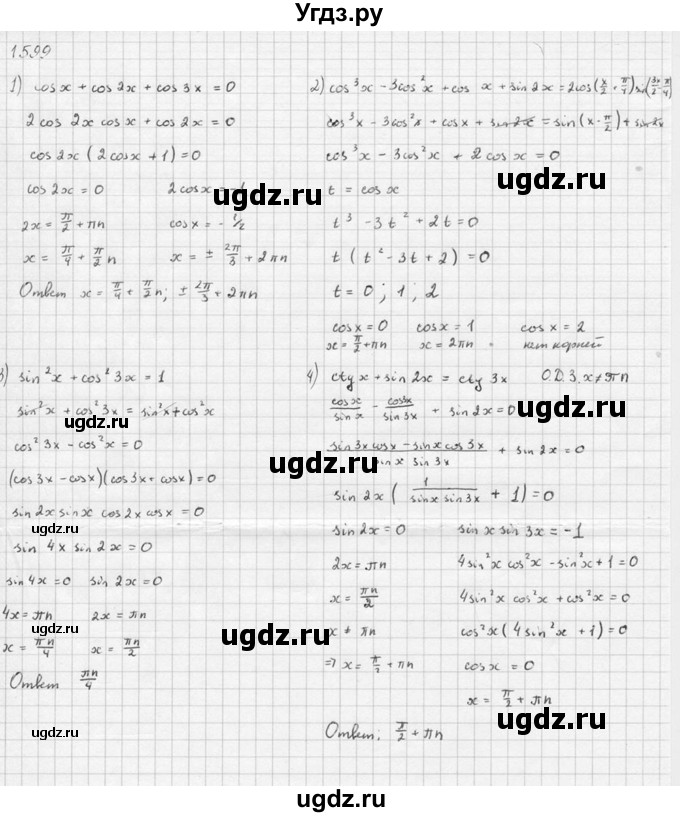 Угдз.ру
1599
1) cos x + cos 2x + cos 3x = 0
2 cos 2x cos x + cos 2x = 0
cos 2x (2 cos x + 1) = 0
cos 2x = 0    2 cos x = -1
2x = π/2 + πn    cos x = - 1/2
x = π/4 + π/2 n    x = ± 2π/3 + 2πn
Ответ x = π/4 + π/2 n; ± 2π/3 + 2πn
2) cos³x - 3cos²x + cos x + sin 2x = 2cos(x/2 + π/4) sin(3x/2 - π/4)
cos³x - 3cos²x + cos x + sin 2x = sin(x - π/2) + sin 2x
cos³x - 3cos²x + 2 cos x = 0
t = cos x
t³ - 3t² + 2t = 0
t (t² - 3t + 2) = 0
t = 0; 1; 2
cos x = 0    cos x = 1    cos x = 2
x = π/2 + πn    x = 2πn    нет корней
3) sin²x + cos²3x = 1
sin²x + cos²3x = sin²x + cos²x
cos²3x - cos²x = 0
(cos 3x - cos x)(cos 3x + cos x) = 0
sin 2x sin x cos 2x cos x = 0
sin 4x sin 2x = 0
sin 4x = 0    sin 2x = 0
4x = πn    2x = πn
x = πn/4    x = πn/2
Ответ πn/4
4) ctg x + sin 2x = ctg 3x    О.Д.З. x ≠ πn
cos x/sin x - cos 3x/sin 3x + sin 2x = 0
sin 3x cos x - sin x cos 3x / sin x sin 3x + sin 2x = 0
sin 2x ( 1/sin x sin 3x + 1) = 0
sin 2x = 0    sin x sin 3x = -1
2x = πn    4 sin²x cos²x - sin²x + 1 = 0
x = πn/2    4 sin²x cos²x + cos²x = 0
x ≠ πn    cos²x (4 sin²x + 1) = 0
=> x = π/2 + πn    cos x = 0
x = π/2 + πn
Ответ: π/2 + πn
ugdz.ru
ugdz.ru
ugdz.ru
ugdz.ru
ugdz.ru
ugdz.ru
ugdz.ru
ugdz.ru
ugdz.ru
ugdz.ru
ugdz.ru
ugdz.ru